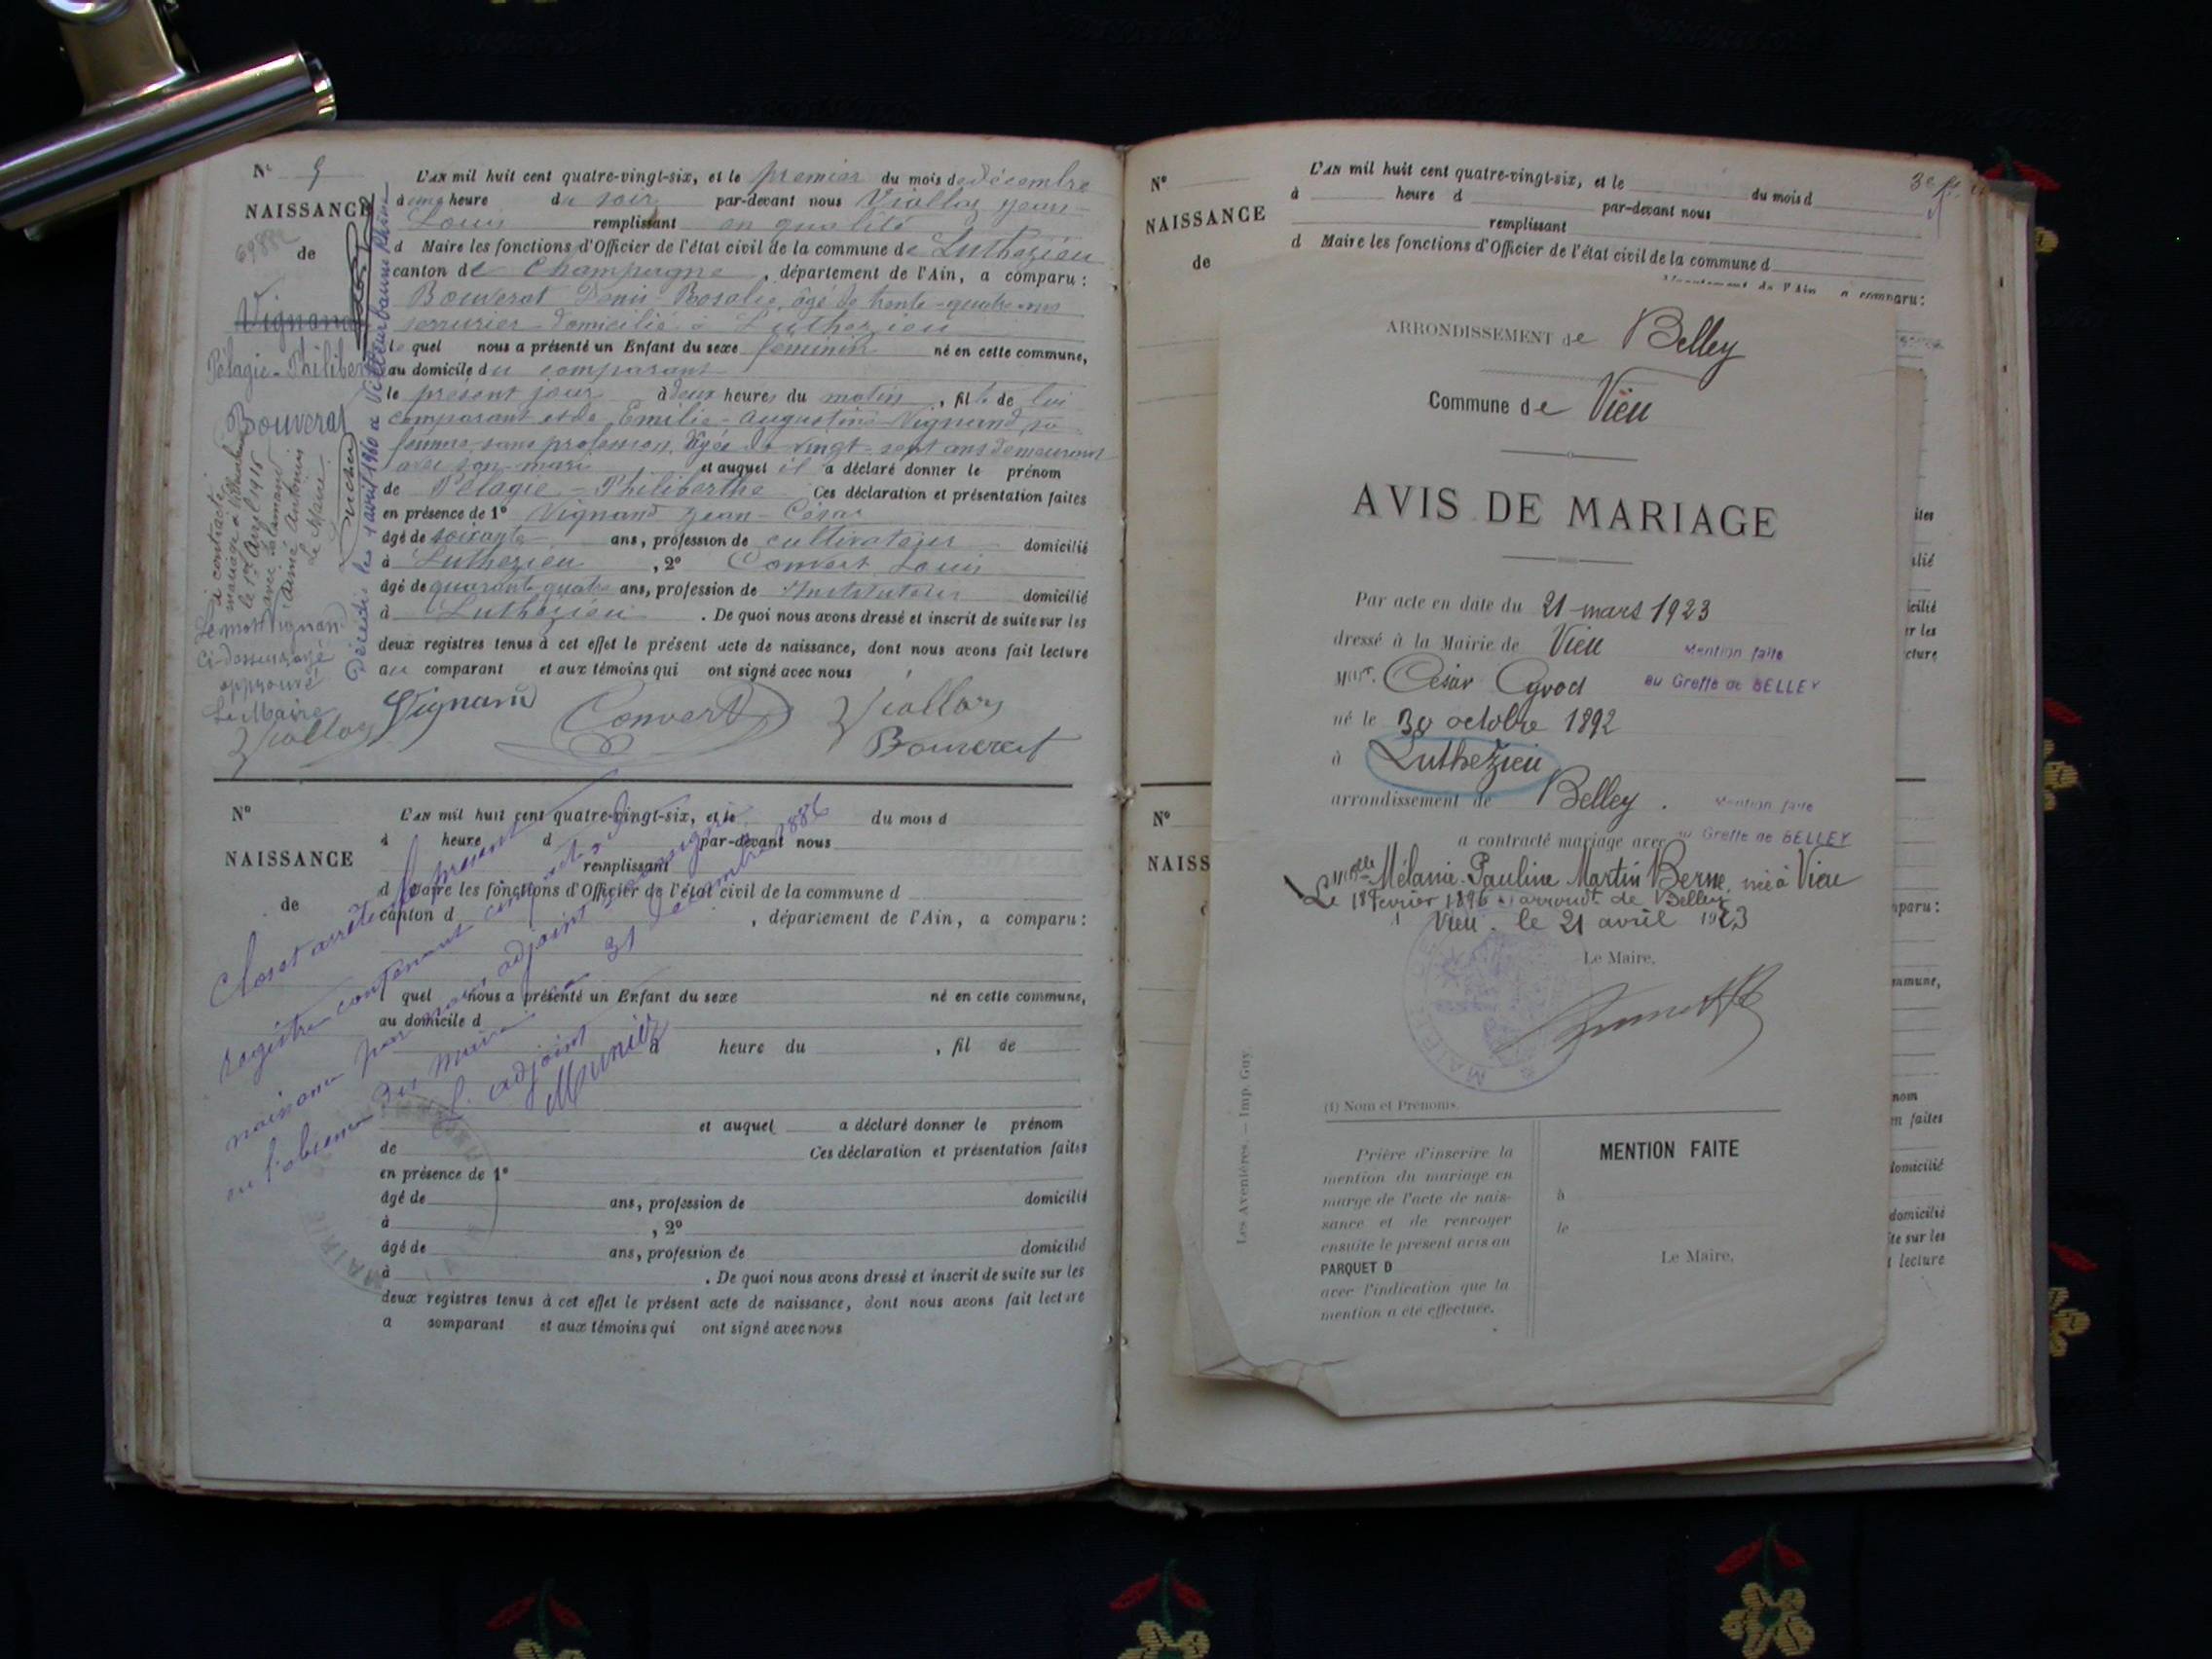 N° 9
NAISSANCE
de
Vignand
Pélagie-Philiberthe
Bouverat
a contracté
mariage à
le 1er Avril 1916
avec
Aimé Antonin
Le Maire
Le mot Vignand
ci-dessus rayé
approuvé
Le Maire
Viollaz
Décédée le 1 avril 1960 à Villeurbanne Rhône
L'AN mil huit cent quatre-vingt-six, et le premier du mois de décembre
à cinq heure du soir par-devant nous Viollaz Jean-
Louis remplissant en qualité
d Maire les fonctions d'Officier de l'état civil de la commune de Luthezieu
canton de Champagne, département de l'Ain, a comparu :
Bouverat Denis-Rosalie, âgé de trente-quatre ans
serrurier domicilié à Luthezieu
le quel nous a présenté un Enfant du sexe féminin né en cette commune,
au domicile du comparant
le présent jour à deux heures du matin, fille de lui
comparant et de Emilie-Augustine Vignand, sa
femme sans profession, âgée de vingt-sept ans demeurant
avec son mari et auquel il a déclaré donner le prénom
de Pélagie-Philiberthe Ces déclaration et présentation faites
en présence de 1° Vignand Jean-César
âgé de soixante ans, profession de cultivateur domicilié
à Luthezieu, 2° Convert Louis
âgé de quarante-quatre ans, profession de Instituteur domicilié
à Luthezieu. De quoi nous avons dressé et inscrit de suite sur les
deux registres tenus à cet effet le présent acte de naissance, dont nous avons fait lecture
au comparant et aux témoins qui ont signé avec nous
Vignand Convert Viollaz
Bouverat
N°
NAISSANCE
de
L'AN mil huit cent quatre-vingt-six, et le du mois d
à heure d par-devant nous
remplissant
d Maire les fonctions d'Officier de l'état civil de la commune d
canton d , département de l'Ain, a comparu :
l quel nous a présenté un Enfant du sexe né en cette commune,
au domicile d
à heure du , fil de
et auquel a déclaré donner le prénom
de Ces déclaration et présentation faites
en présence de 1°
âgé de ans, profession de domicilié
à , 2°
âgé de ans, profession de domicilié
à . De quoi nous avons dressé et inscrit de suite sur les
deux registres tenus à cet effet le présent acte de naissance, dont nous avons fait lecture
a comparant et aux témoins qui ont signé avec nous
Clos et arrêté le présent
registre contenant
naissance par nous adjoint soussigné
en l'absence du maire 31 décembre 1886
l'adjoint
Munier
MAIRIE
N°
NAISSANCE
de
L'AN mil huit cent quatre-vingt-six, et le du mois d
à heure d par-devant nous
remplissant
d Maire les fonctions d'Officier de l'état civil de la commune d
département de l'Ain a comparu :
N°
NAISS
ARRONDISSEMENT de Belley
Commune de Vieu
AVIS DE MARIAGE
Par acte en date du 21 mars 1923
dressé à la Mairie de Vieu
Mention faite
au Greffe de BELLEY
M(1)r. César Cyvoct
né le 30 octobre 1892
à Luthezieu
arrondissement de Belley.
Mention faite
au Greffe de BELLEY
a contracté mariage avec
Melle Mélanie-Pauline Martin Berne, née à Vieu
Le 18 Fevrier 1896 arrondt de Belley
A Vieu. le 21 avril 1923
Le Maire,
MAIRIE
(1) Nom et Prénoms.
Prière d'inscrire la
mention du mariage en
marge de l'acte de nais-
sance et de renvoyer
ensuite le présent avis au
PARQUET D
avec l'indication que la
mention a été effectuée.
MENTION FAITE
à
le
Le Maire,
Les Avenières. — Imp. Guy.